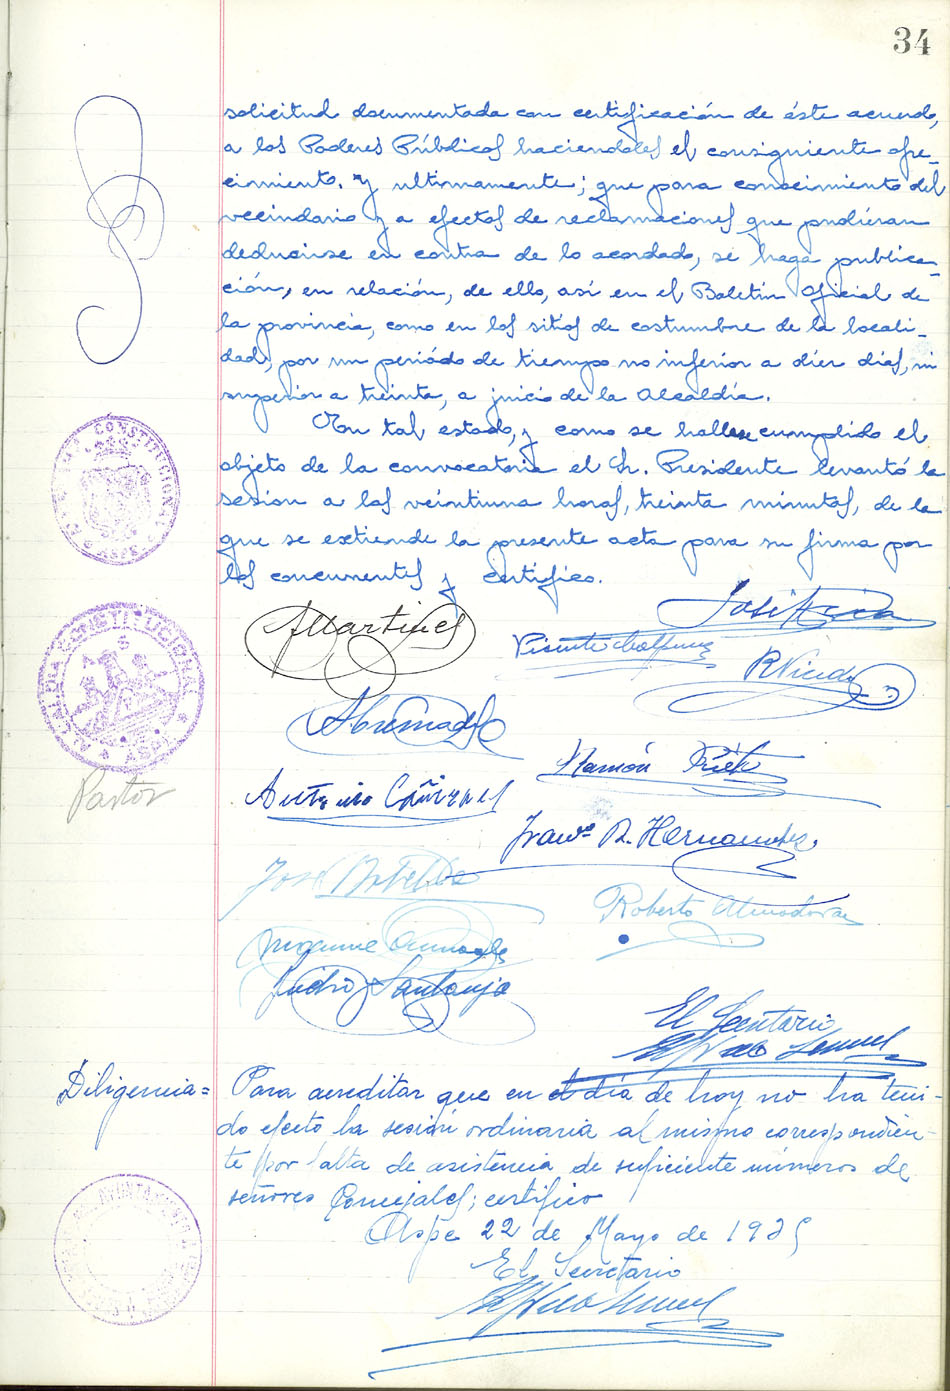 34
solicitud documentada con certificación de éste acuerdo,
a los Poderes Públicos haciendoles el consiguiente ofre-
cimiento. Y ultimamente; que para conocimiento del
vecindario y a efectos de reclamaciones que pudieran
deducirse en contra de lo acordado, se haga publica-
ción, en relación, de ello, así en el Boletín Oficial de
la provincia, como en los sitios de costumbre de la locali-
dad, por un periódo de tiempo no inferior a diez dias, ni
superior a treinta, a juicio de la Alcaldía.
En tal estado, y como se hallase cumplido el
objeto de la convocatoria el Sr. Presidente levantó la
sesión a las veintiuna horas, treinta minutos, de la
que se extiende la presente acta para su firma por
los concurrentes y certifico.
CONSTITUCIONAL
ALCALDIA CONSTITUCIONAL
ASPE
Martinez
Vicente
Ramón
Pastor
Antonio Cañizares
Franco. R. Hernandez
José Botella
Roberto Almodovar
Pedro Santonja
El Secretario
Diligencia= Para acreditar que en el día de hoy no ha teni-
do efecto la sesión ordinaria al mismo correspondien-
te por falta de asistencia de suficiente números de
señores Concejales; certifico
Aspe 22 de Mayo de 1935
El Secretario